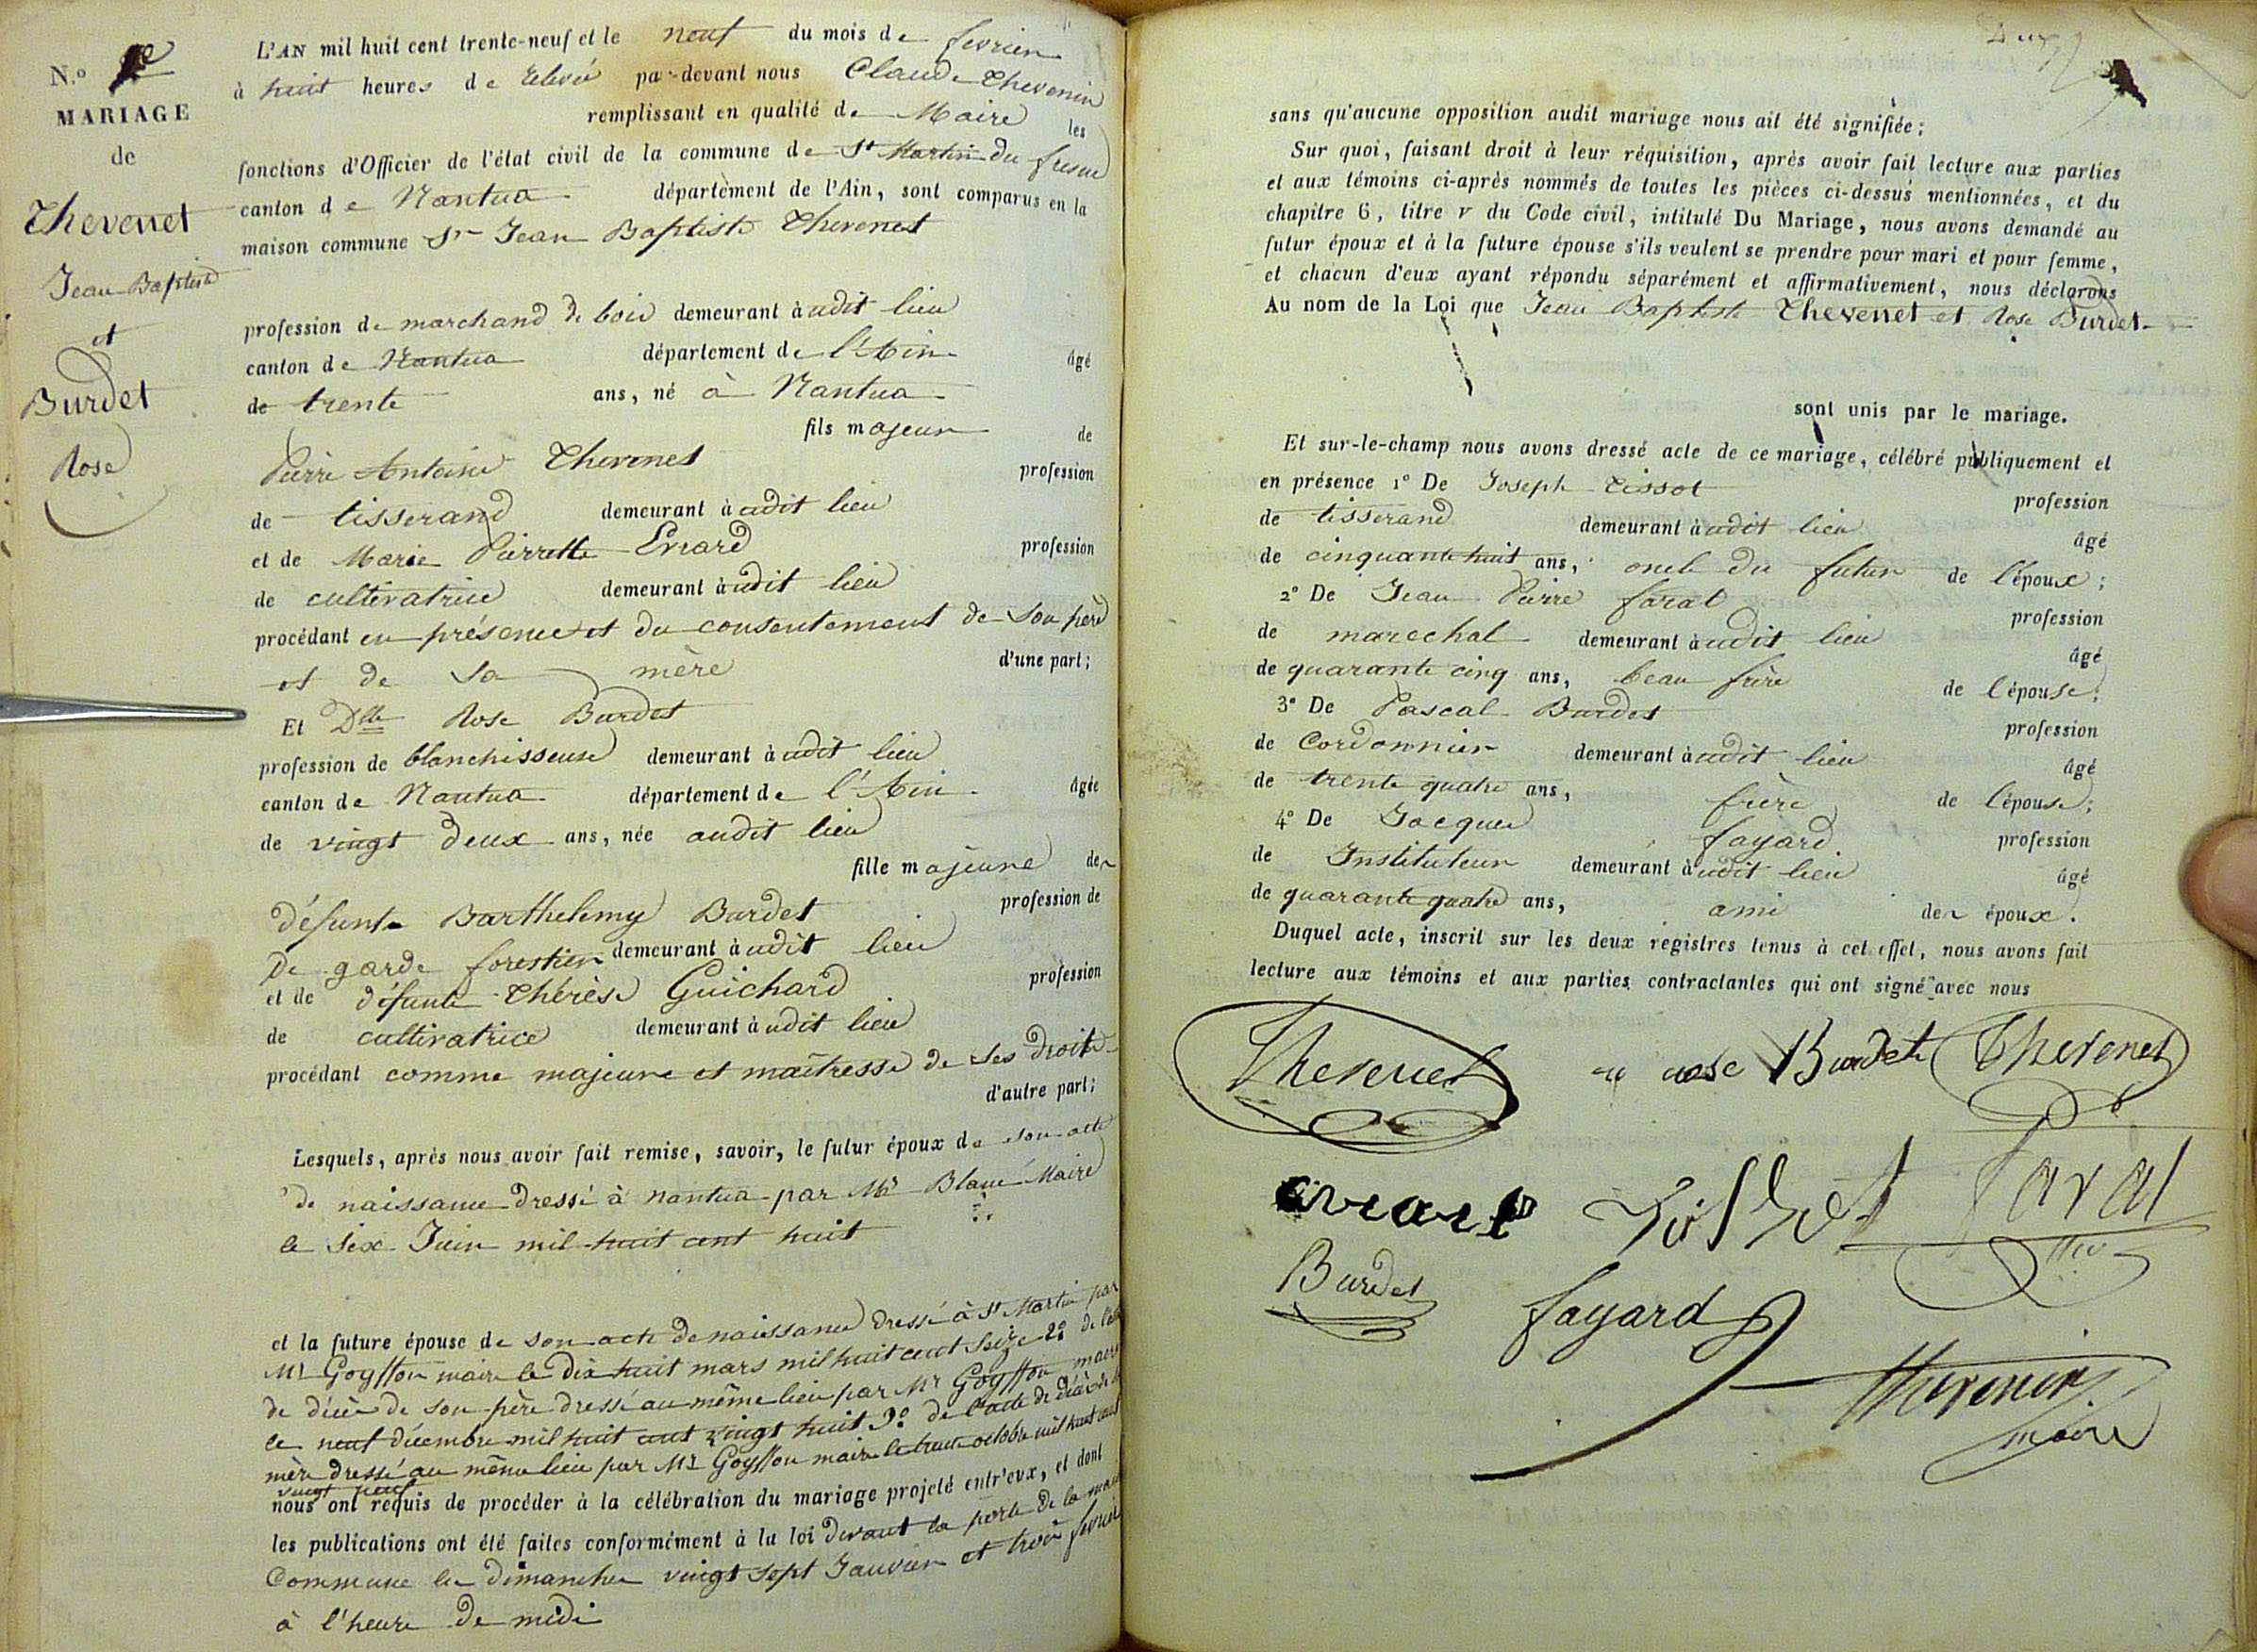 N.º
MARIAGE
de
Thevenet
Jean Baptiste
et
Burdet
Rose
L'AN mil huit cent trente-neuf et le neuf du mois de fevrier
à huit heures de relevée par-devant nous Claude Thevenin
remplissant en qualité de Maire les
fonctions d'Officier de l'état civil de la commune de St Martin du fresne
canton de Nantua département de l'Ain, sont comparus en la
maison commune Sr Jean Baptiste Thevenet
profession de marchand de bois demeurant à udit lieu
canton de Nantua département de l'Ain âgé
de trente ans, né à Nantua
fils majeur de
Pierre Antoine Thevenet profession
de tisserand demeurant à udit lieu
et de Marie Pierrette Evrard profession
de cultivatrice demeurant à udit lieu
procédant en présence et du consentement de son père
et de sa mère d'une part;
Et Dlle Rose Burdet
profession de blanchisseuse demeurant à udit lieu
canton de Nantua département de l'Ain âgée
de vingt deux ans, née audit lieu
fille majeure de
défunt Barthelemy Burdet profession de
De garde forestier demeurant à udit lieu
et de défunte Thérèse Guichard profession
de cultivatrice demeurant à udit lieu
procédant comme majeure et maîtresse de ses droits
d'autre part;
Lesquels, après nous avoir fait remise, savoir, le futur époux de son acte
de naissance dressé à nantua par Mr Blanc Maire
le six Juin mil huit cent huit
et la future épouse de son acte de naissance dressé à St Martin par
Mr Goyffon maire le dix huit mars mil huit cent seize 2º de l'acte
de décès de son père dressé au même lieu par Mr Goyffon maire
le neuf décembre mil huit cent vingt huit 3º de l'acte de décès de
mère dressé au même lieu par Mr Goyffon maire le trente octobre mil huit cent
vingt neuf
nous ont requis de procéder à la célébration du mariage projeté entr'eux, et dont
les publications ont été faites conformément à la loi devant la porte de la maison
Commune les dimanches vingt sept Janvier et trois fevrier
à l'heure de midi
Deux
sans qu'aucune opposition audit mariage nous ait été signifiée;
Sur quoi, faisant droit à leur réquisition, après avoir fait lecture aux parties
et aux témoins ci-après nommés de toutes les pièces ci-dessus mentionnées, et du
chapitre 6, titre v du Code civil, intitulé Du Mariage, nous avons demandé au
futur époux et à la future épouse s'ils veulent se prendre pour mari et pour femme,
et chacun d'eux ayant répondu séparément et affirmativement, nous déclarons
Au nom de la Loi que Jean Baptiste Thevenet et Rose Burdet
sont unis par le mariage.
Et sur-le-champ nous avons dressé acte de ce mariage, célébré publiquement et
en présence 1º De Joseph Tissot profession
de tisserand demeurant à udit lieu âgé
de cinquante huit ans, oncle du futur de l'époux;
2º De Jean Pierre farat profession
de marechal demeurant à udit lieu âgé
de quarante cinq ans, beau frère de l'épouse;
3º De Pascal Burdet profession
de Cordonnier demeurant à udit lieu âgé
de trente quatre ans, frère de l'épouse;
4º De Jacques fayard profession
de Instituteur demeurant à udit lieu âgé
de quarante quatre ans, ami des époux.
Duquel acte, inscrit sur les deux registres tenus à cet effet, nous avons fait
lecture aux témoins et aux parties contractantes qui ont signé avec nous
Thevenet rose Burdet Thevenet
Tissot
Burdet fayard
Thevenin
maire